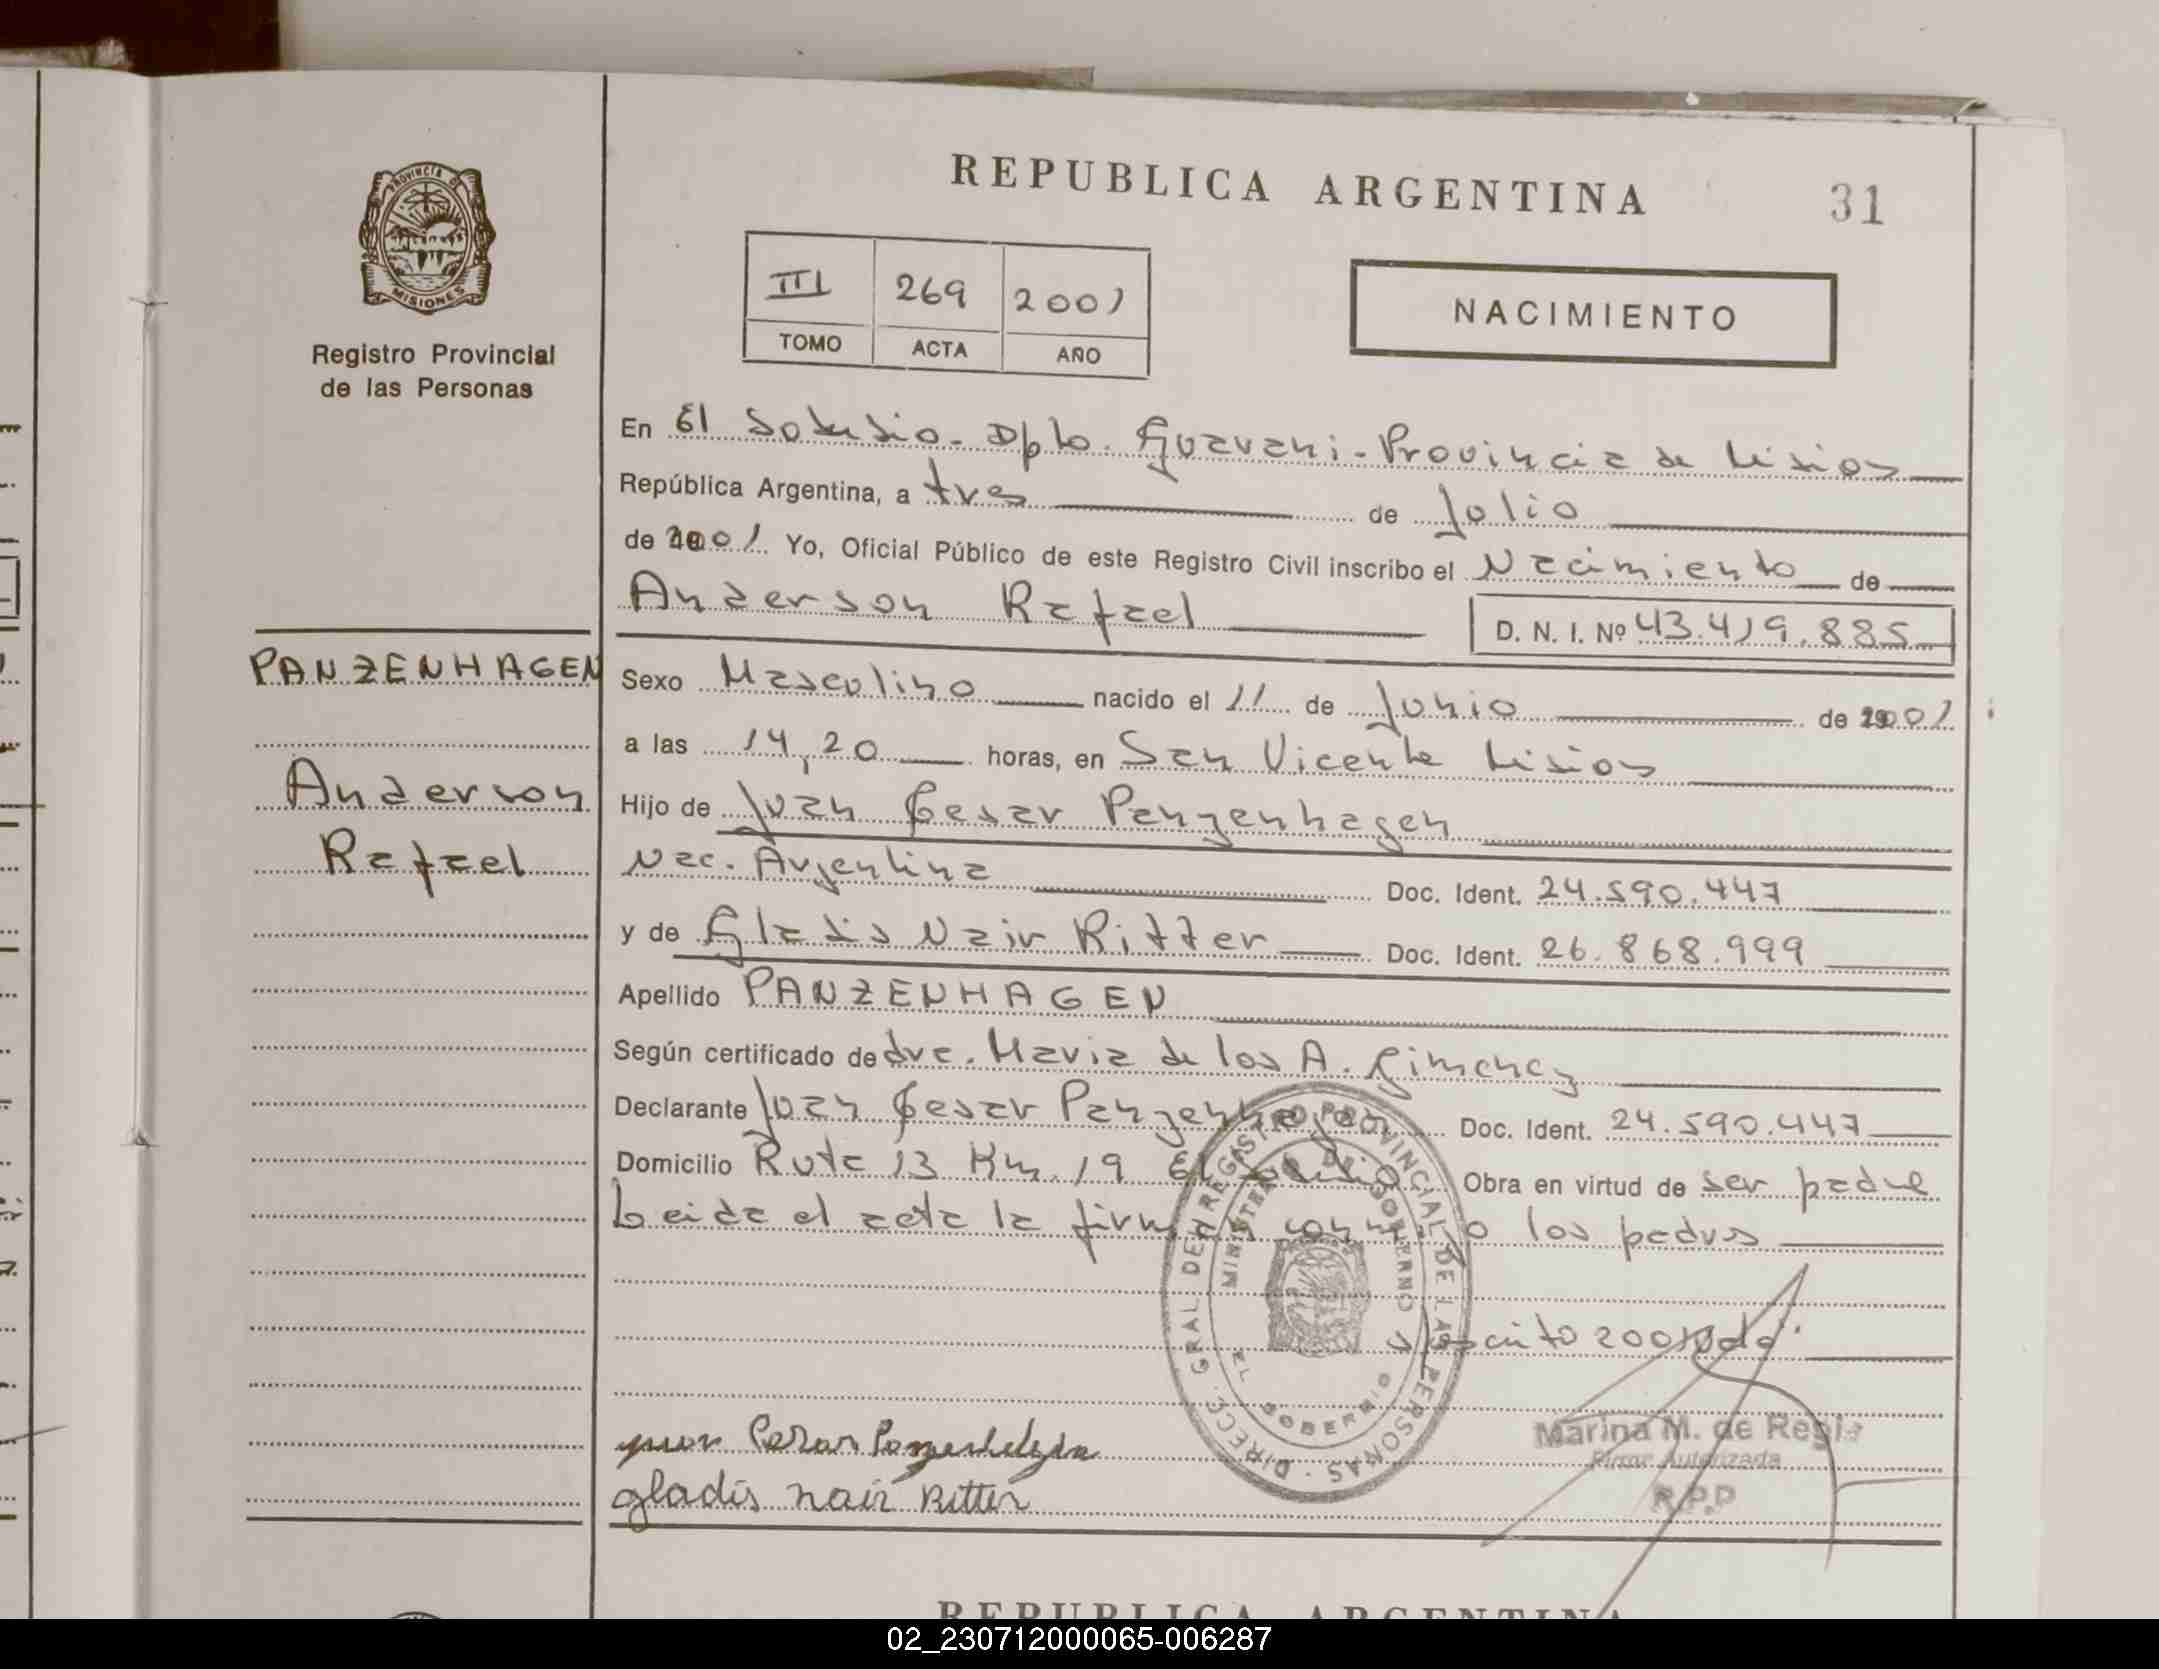 REPUBLICA ARGENTINA
31
PROVINCIA DE
MISIONES
Registro Provincial
de las Personas
III 269 2001
TOMO ACTA AÑO
NACIMIENTO
En El Soberbio - Dpto. Guarani - Provincia de Misiones
República Argentina, a tres de Julio
de 2001 Yo, Oficial Público de este Registro Civil inscribo el Nacimiento de
Anderson Rafael
D. N. I. Nº 43.419.885
PANZENHAGEN
Anderson
Rafael
Sexo Masculino nacido el 11 de Junio de 2001
a las 14,20 horas, en San Vicente Misiones
Hijo de Juan Cesar Panzenhagen
Nac. Argentina Doc. Ident. 24.590.447
y de Gladis Nair Ritter Doc. Ident. 26.868.999
Apellido PANZENHAGEN
Según certificado de dra. Maria de los A. Gimenez
Declarante Juan Cesar Panzenhagen Doc. Ident. 24.590.447
Domicilio Ruta 13 Km. 19 El Soberbio Obra en virtud de ser padre
Leida el acta la firman conmigo los padres
DIRECC. GRAL. DEL REGISTRO PROVINCIAL DE LAS PERSONAS
MINISTERIO DE GOBIERNO
EL SOBERBIO
2001
Marina M. de Regis
Firma Autorizada
R.P.P
gladis nair Ritter
REPUBLICA ARGENTINA
02_230712000065-006287